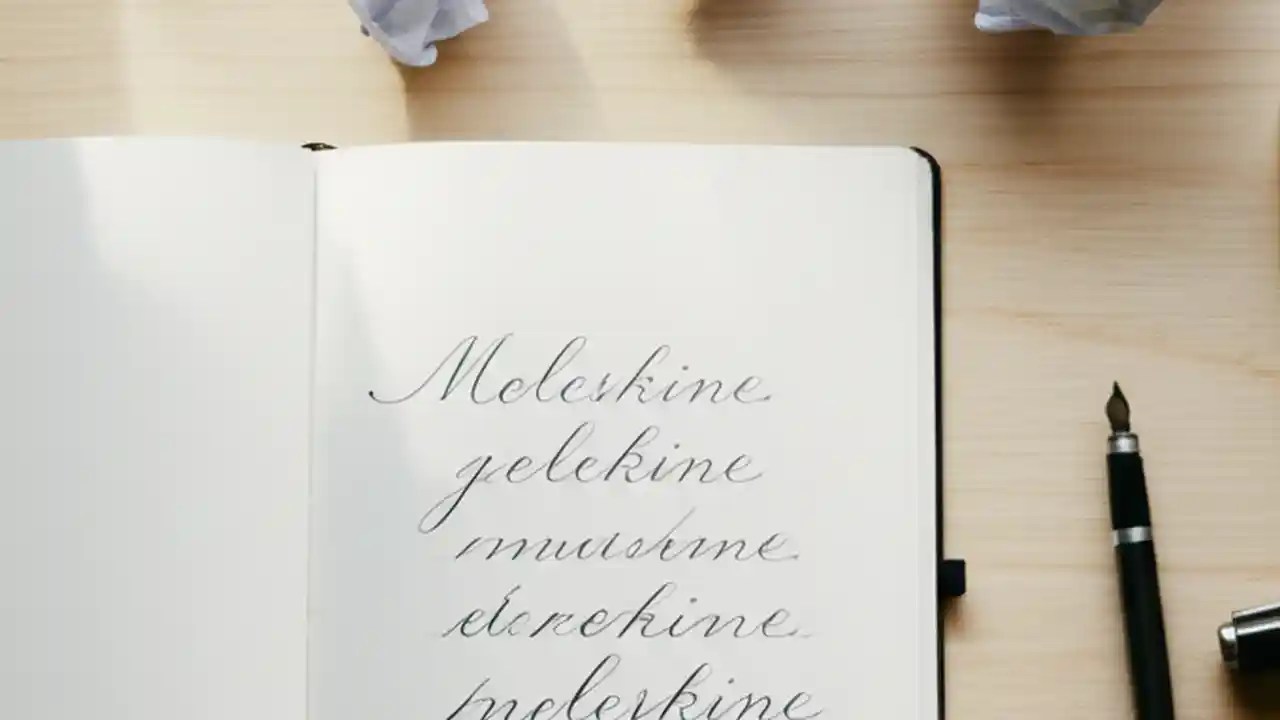 Moleskine
gelekine
muushme
derekine
moleskine